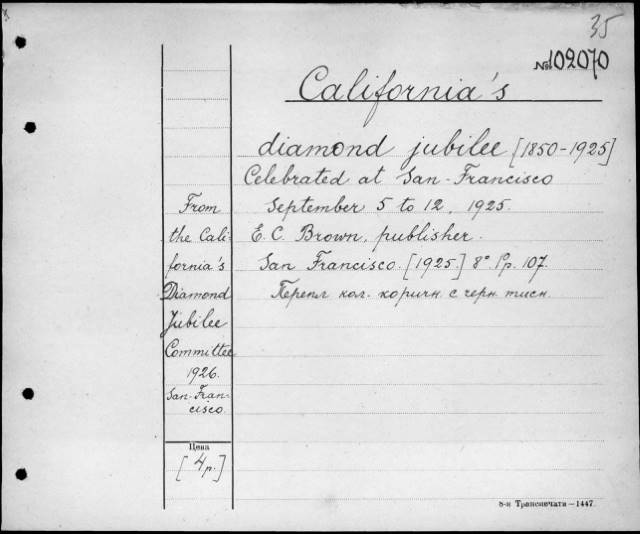 35
№ 102070
California's
diamond jubilee [1850-1925]
Celebrated at San-Francisco
September 5 to 12, 1925.
E. C. Brown, publisher.
San Francisco. [1925.] 8° Pp. 107.
Перепл кол. коричн. с черн. тисн.
From
the Cali-
fornia's
Diamond
Jubilee
Committee
1926.
San-Fran-
cisco.
Цена
[4 р.]
8-я Транспечати—1447.